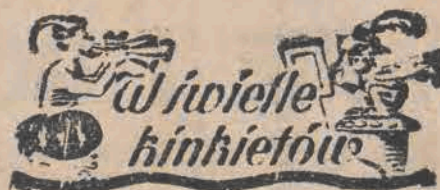 W świetle
kinkietów